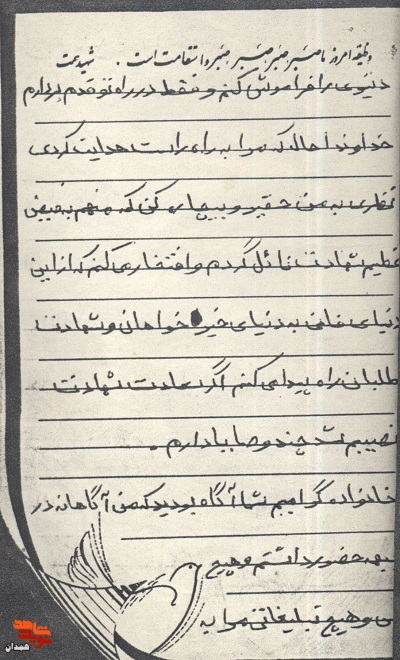 وظیفه امروز ما صبر، صبر، صبر و استقامت است. شهید بهشتی
دنیوی را فراموش کنم و فقط در راه تو قدم بردارم
خداوندا حال که مرا به راه راست هدایت کردی
نظری به من حقیر و بیچاره کن که منهم به فیض
عظیم شهادت نائل گردم و افتخار می کنم که از این
دنیای فانی به دنیای خیر خواهان و شهادت
طلبان راه پیدا می کنم اگر سعادت شهادت
نصیبم شد چند وصایا دارم.
خانواده گرامیم شما آگاه بودید که من آگاهانه در
جبهه حضور داشتم و هیچ
و هیچ تبلیغاتی مرا به
همدان